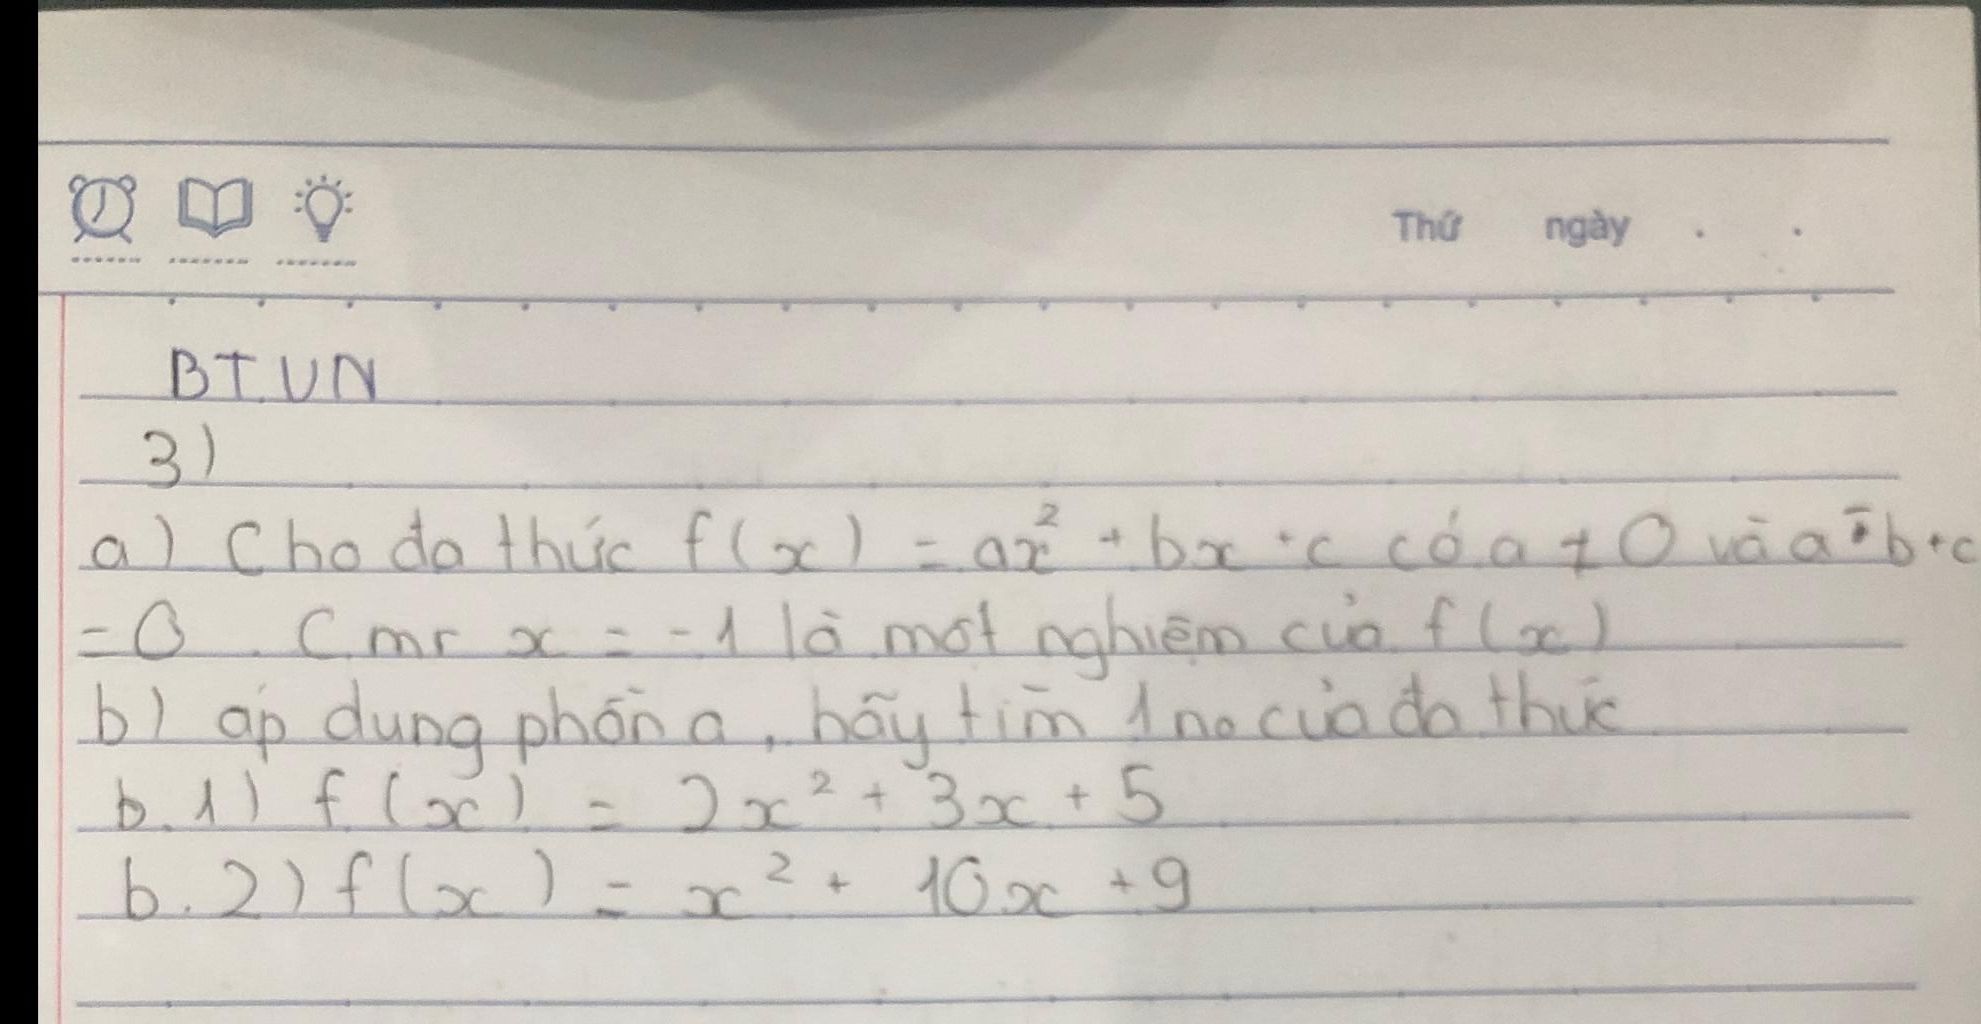 Thứ ngày . .
BTVN
3)
a) Cho đa thức f(x) = ax² + bx + c có a ≠ 0 và a - b + c
= 0. Cmr x = -1 là một nghiệm của f(x)
b) áp dụng phần a, hãy tìm 1 no của đa thức
b.1) f(x) = 2x² + 3x + 5
b.2) f(x) = x² + 10x + 9